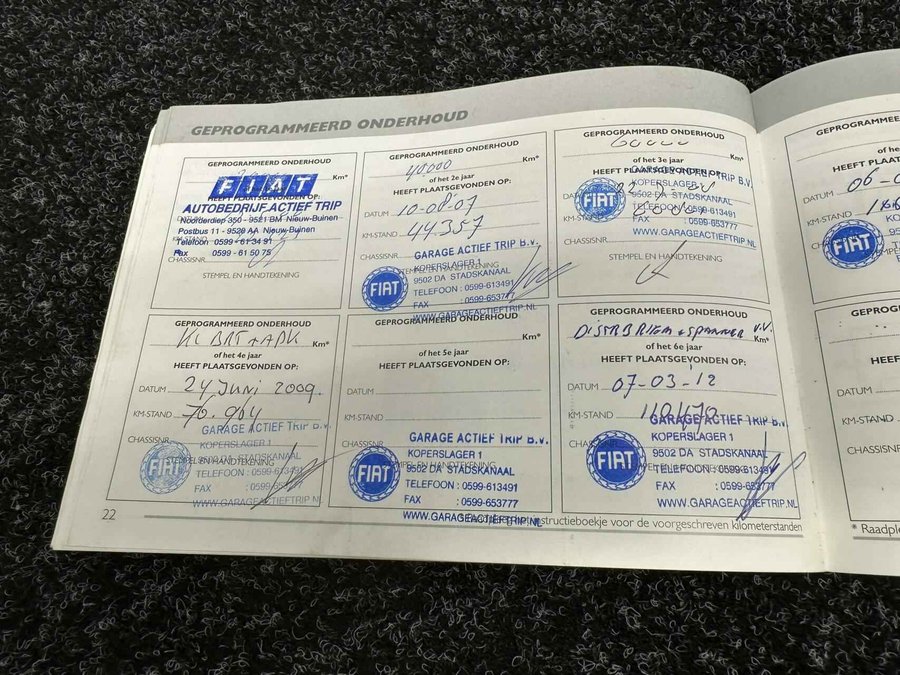 GEPROGRAMMEERD ONDERHOUD
GEPROGRAMMEERD ONDERHOUD
Km*
HEEFT PLAATSGEVONDEN OP:
FIAT
AUTOBEDRIJF ACTIEF TRIP
Noorderdiep 350 - 9521 BM Nieuw-Buinen
Postbus 11 - 9528 AA Nieuw-Buinen
Telefoon 0599 - 61 34 91
Fax 0599 - 61 50 75
CHASSISNR
STEMPEL EN HANDTEKENING
GEPROGRAMMEERD ONDERHOUD
40000 Km*
of het 2e jaar
HEEFT PLAATSGEVONDEN OP:
DATUM 10-08-07
KM-STAND 49.357
CHASSISNR
GARAGE ACTIEF TRIP B.V.
KOPERSLAGER 1
STEMPEL EN HANDTEKENING
9502 DA STADSKANAAL
FIAT
TELEFOON : 0599-613491
FAX : 0599-653777
WWW.GARAGEACTIEFTRIP.NL
GEPROGRAMMEERD ONDERHOUD
60000 Km*
of het 3e jaar
HEEFT PLAATSGEVONDEN OP:
GARAGE ACTIEF TRIP B.V.
KOPERSLAGER 1
9502 DA STADSKANAAL
FIAT
TELEFOON : 0599-613491
FAX : 0599-653777
WWW.GARAGEACTIEFTRIP.NL
CHASSISNR
STEMPEL EN HANDTEKENING
GEPROGRAMMEERD ONDERHOUD
Km*
of het 4e jaar
HEEFT PLAATSGEVONDEN OP:
DATUM 24 Juni 2009.
KM-STAND 70.904
CHASSISNR
GARAGE ACTIEF TRIP B.V.
KOPERSLAGER 1
9502 DA STADSKANAAL
STEMPEL EN HANDTEKENING
FIAT
TELEFOON : 0599-613491
FAX : 0599-653777
WWW.GARAGEACTIEFTRIP.NL
GEPROGRAMMEERD ONDERHOUD
Km*
of het 5e jaar
HEEFT PLAATSGEVONDEN OP:
DATUM
KM-STAND
CHASSISNR
GARAGE ACTIEF TRIP B.V.
KOPERSLAGER 1
9502 DA STADSKANAAL
STEMPEL EN HANDTEKENING
FIAT
TELEFOON : 0599-613491
FAX : 0599-653777
WWW.GARAGEACTIEFTRIP.NL
GEPROGRAMMEERD ONDERHOUD
V.V.
Km*
of het 6e jaar
HEEFT PLAATSGEVONDEN OP:
DATUM 07-03-12
KM-STAND 110470
CHASSISNR
GARAGE ACTIEF TRIP B.V.
KOPERSLAGER 1
9502 DA STADSKANAAL
FIAT
TELEFOON : 0599-613491
FAX : 0599-653777
WWW.GARAGEACTIEFTRIP.NL
22
instructieboekje voor de voorgeschreven kilometerstanden
GEPROGRAMME
of he
HEEFT PLAA
DATUM 06-
KM-STAND
FIAT
GEPROGRAM
HEEF
DATUM
KM-STAND
CHASSISNR
* Raadple